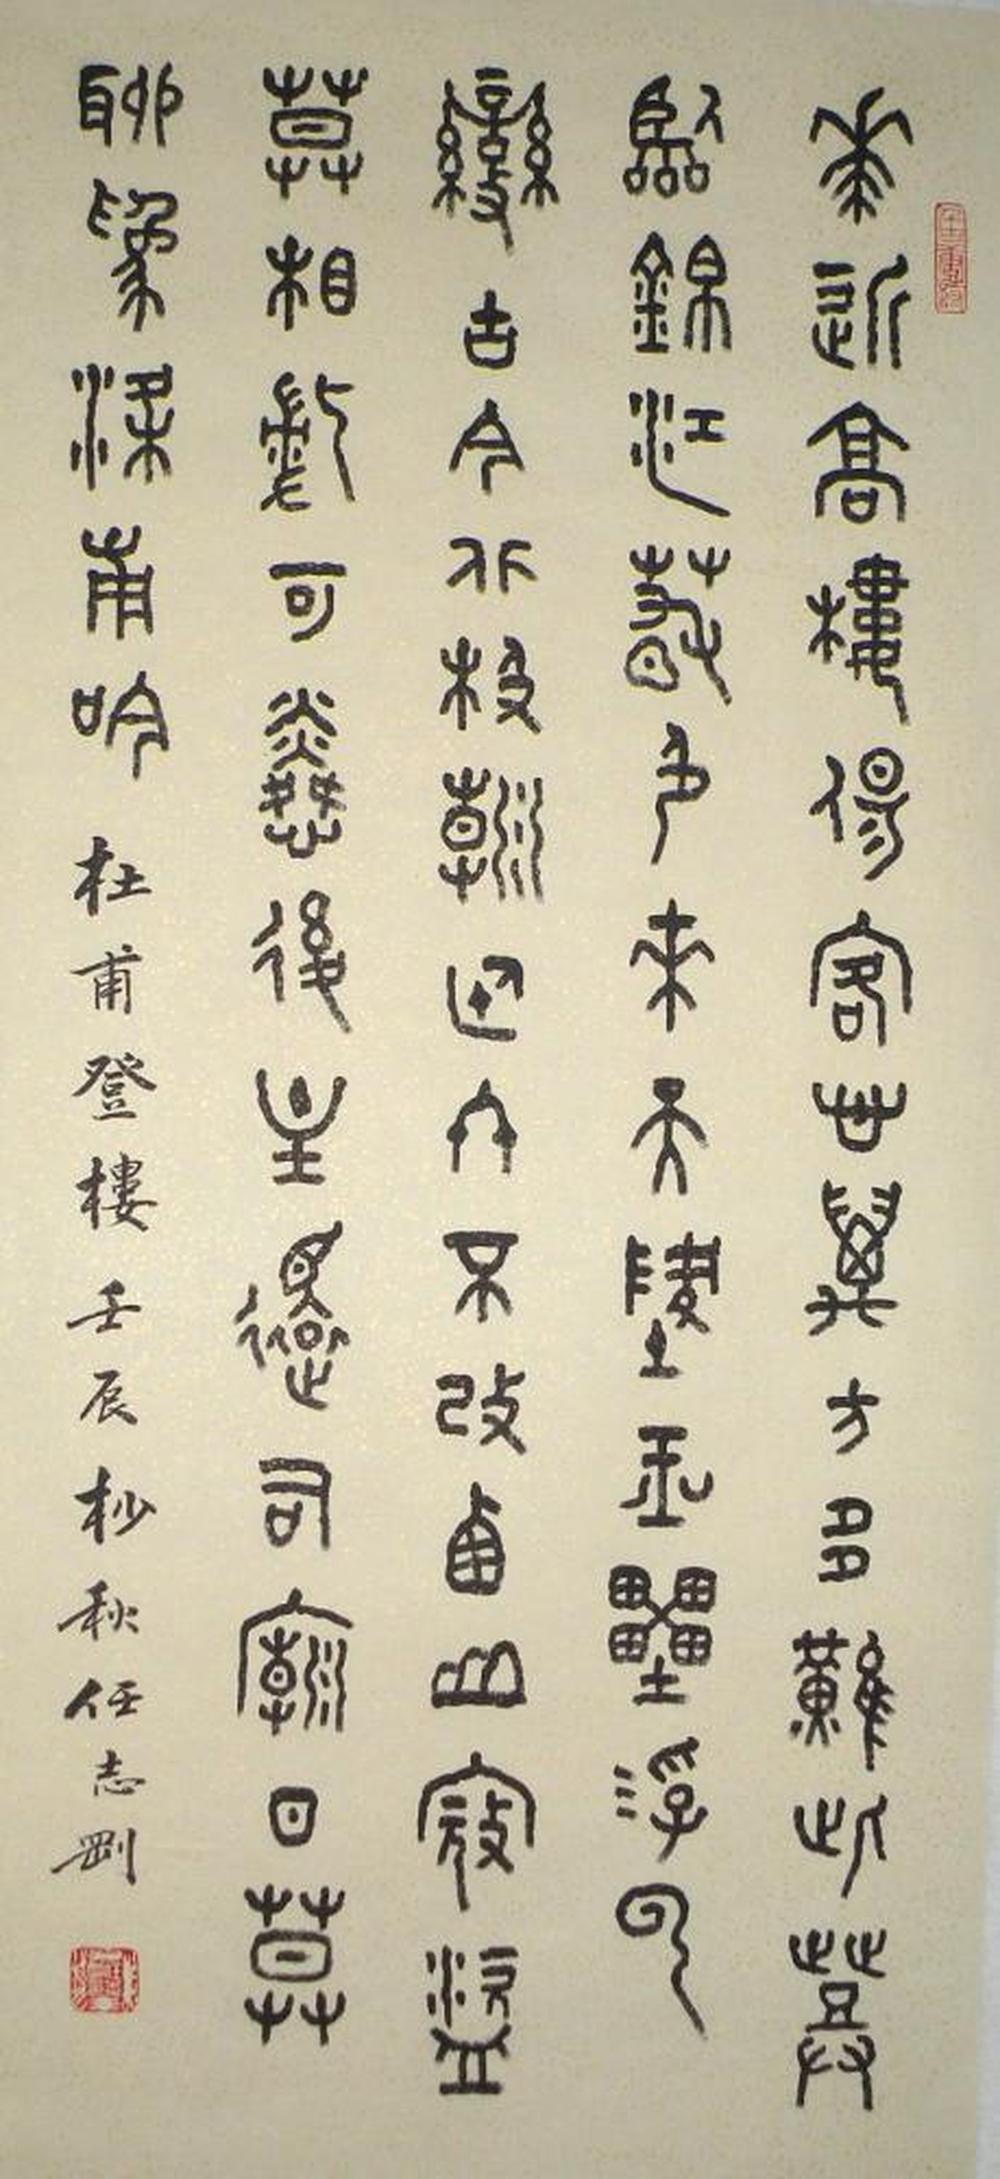 華近高樓傷客心萬方多難此登
臨錦江春色來天地玉壘浮雲
變古今北極朝廷終不改西山寇盜
莫相侵可憐後主還祠廟日暮
聊為梁甫吟 杜甫登樓 壬辰杪秋任志剛